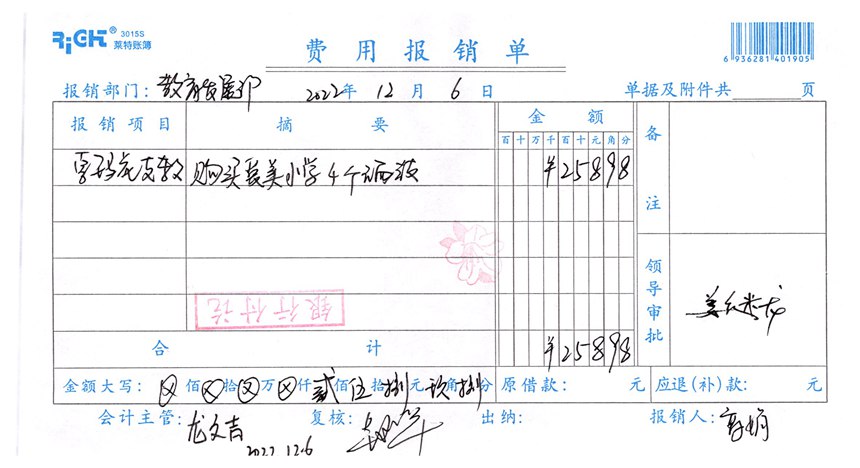 RiCHT® 3015S 莱特账簿
费用报销单
6 936281 401905
报销部门: 教育发展部 2022年 12月 6日 单据及附件共 页
报销项目 摘要 金额 备注
百 十 万 千 百 十 元 角 分
支教 购买 美小学4个 ¥25898
银行付讫
领导审批
合计 ¥25898
金额大写: ⊗佰⊗拾⊗万⊗仟贰佰伍拾捌元玖角捌分 原借款: 元 应退(补)款: 元
会计主管: 龙文吉 复核: 出纳: 报销人:
2022.12.6